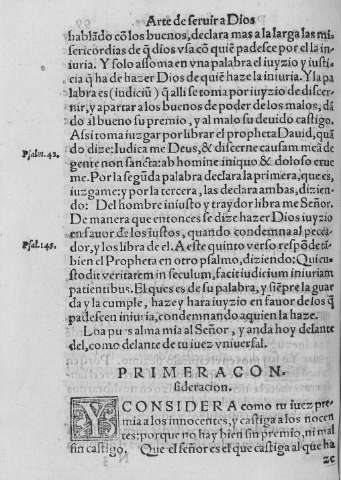 Arte de seruir a Dios
hablãdo cõ los buenos, declara mas a la larga las mi
sericordias de q̃ dios vsa cõ quiẽ padesce por el la in
iuria. Y solo assoma en vna palabra el iuyzio y iusti
cia q̃ ha de hazer Dios de quiẽ haze la iniuria. Y la pa
labra es (iudiciũ) q̃ alli se toma por iuyzio de discer-
nir, y apartar a los buenos de poder de los malos, dã
do al bueno su premio, y al malo su deuido castigo.
Assi toma iuzgar por librar el propheta Dauid, quã
Psalm. 42. do dize: Iudica me Deus, & discerne causam meã de
gente non sancta: ab homine iniquo & doloso erue
me. Por la segũda palabra declara la primera, que es,
iuzgame: y por la tercera, las declara ambas, dizien-
do: Del hombre iniusto y traydor libra me Señor.
De manera que entonces se dize hazer Dios iuyzio
en fauor de los iustos, quando condemna al pecca-
Psal. 145. dor, y los libra de el. A este quinto verso respõde tã
bien el Propheta en otro psalmo, diziendo: Qui cu-
stodit veritatem in seculum, facit iudicium iniuriam
patientibus. El que es de su palabra, y siẽpre la guar
da y la cumple, haze y hara iuyzio en fauor de los q̃
padescen iniuria, condemnando a quien la haze.
Loa pues alma mia al Señor, y anda hoy delante
del, como delante de tu iuez vniuersal.
PRIMERA CON-
sideracion.
Y CONSIDERA como tu iuez pre-
mia a los innocentes, y castiga a los nocen
tes: porque no hay bien sin premio, ni mal
sin castigo. Que el señor es el que castiga al que ha
ze